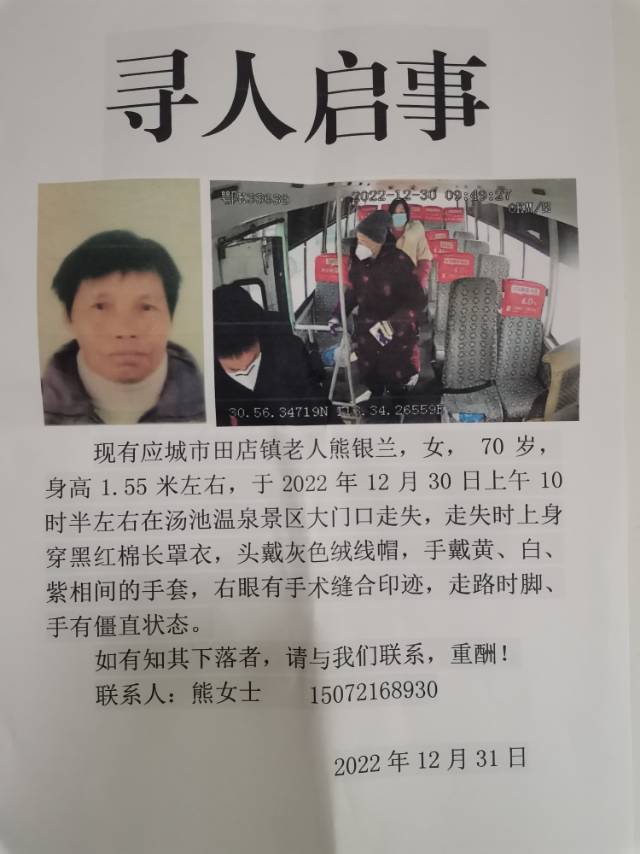 寻人启事
2022-12-30 09:49:27
现有应城市田店镇老人熊银兰，女， 70 岁，
身高 1.55 米左右，于 2022 年 12 月 30 日上午 10
时半左右在汤池温泉景区大门口走失，走失时上身
穿黑红棉长罩衣，头戴灰色绒线帽，手戴黄、白、
紫相间的手套，右眼有手术缝合印迹，走路时脚、
手有僵直状态。
如有知其下落者，请与我们联系，重酬！
联系人：熊女士 15072168930
2022 年 12 月 31 日